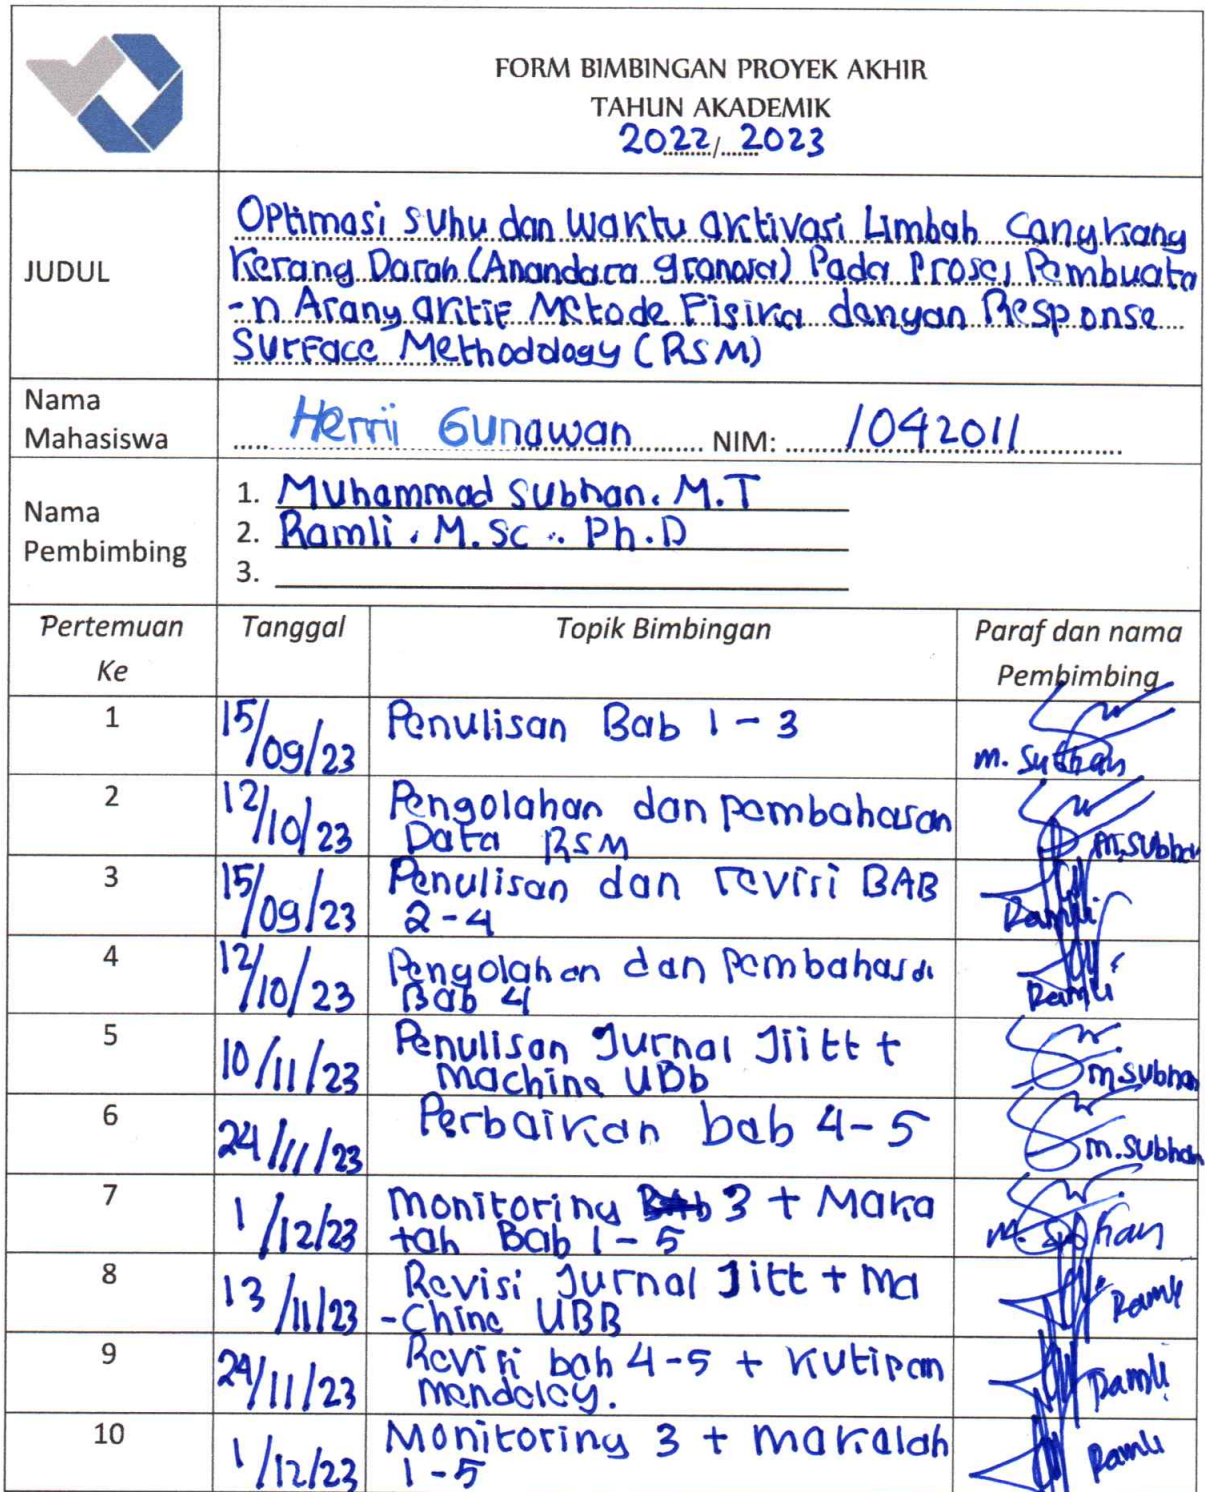 FORM BIMBINGAN PROYEK AKHIR
TAHUN AKADEMIK
2022/2023
JUDUL
Optimasi suhu dan waktu aktivasi Limbah Cangkang
Kerang Darah (Anandara granosa) Pada Proses Pembuata
-n Arang aktif Metode Fisika dengan Response
Surface Methodology (RSM)
Nama
Mahasiswa
Herrii Gunawan NIM: 1042011
Nama
Pembimbing
1. Muhammad Subhan. M.T
2. Ramli. M.Sc.. Ph.D
3.
Pertemuan
Ke
Tanggal
Topik Bimbingan
Paraf dan nama
Pembimbing
1 15/09/23 Penulisan Bab 1 - 3 m. Subhan
2 12/10/23 Pengolahan dan pembahasan
Data RSM M.Subhan
3 15/09/23 Penulisan dan revisi BAB
2 - 4 Ramli
4 12/10/23 Pengolahan dan pembahasa
Bab 4 Ramli
5 10/11/23 Penulisan Jurnal Jiitt +
machine UBb m.subhan
6 24/11/23 Perbaikan bab 4-5 m.subhan
7 1/12/23 monitoring 3 + Maka
lah Bab 1 - 5 M. Subhan
8 13/11/23 Revisi Jurnal Jitt + Ma
-chine UBB Ramli
9 24/11/23 Revisi bab 4-5 + Kutipan
mendeley. Ramli
10 1/12/23 Monitoring 3 + makalah
1 - 5 Ramli